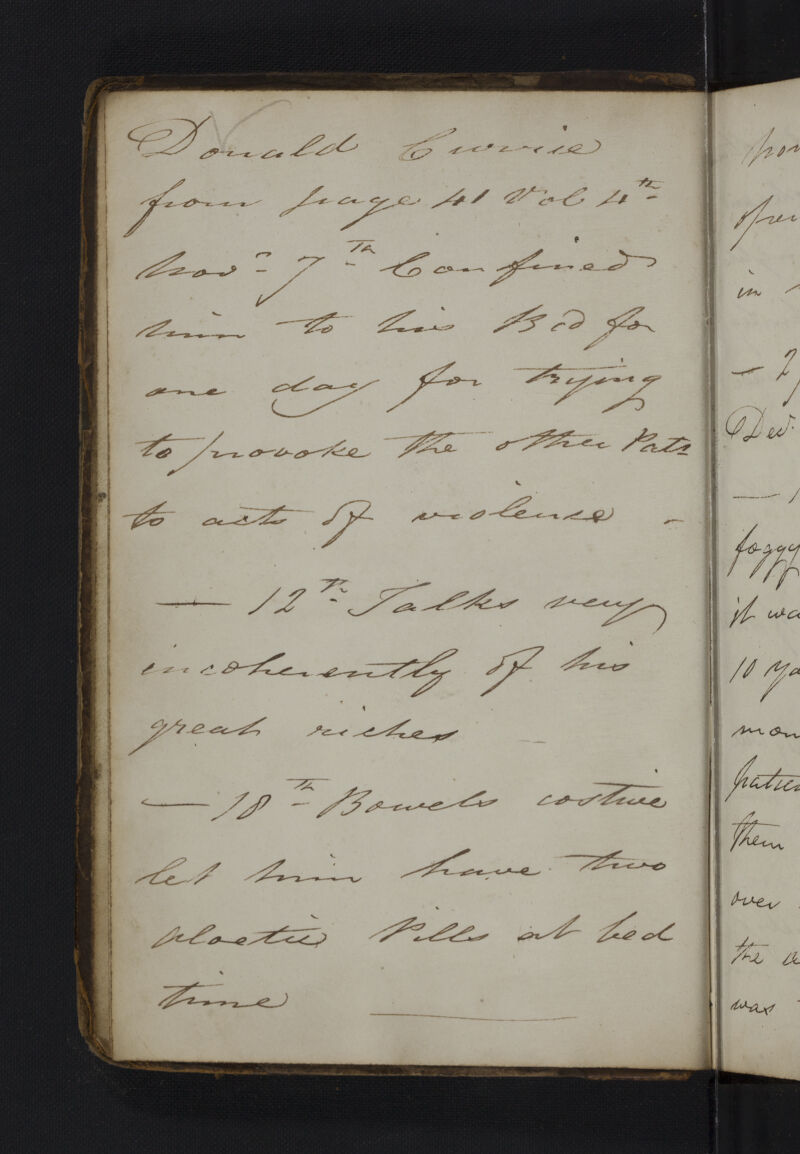 Donald Currie
from page 41 Vol 4th
Novr 7th Confined
him to his Bed for
one day for trying
to provoke the other Pats
to acts of violence -
— 12th Talks very
incoherently of his
great riches —
— 18th Bowels costive
let him have two
aloetic Pills at bed
time
in
Decr
foggy
it wa
10 ya
mon
patien
them
over
the a
was